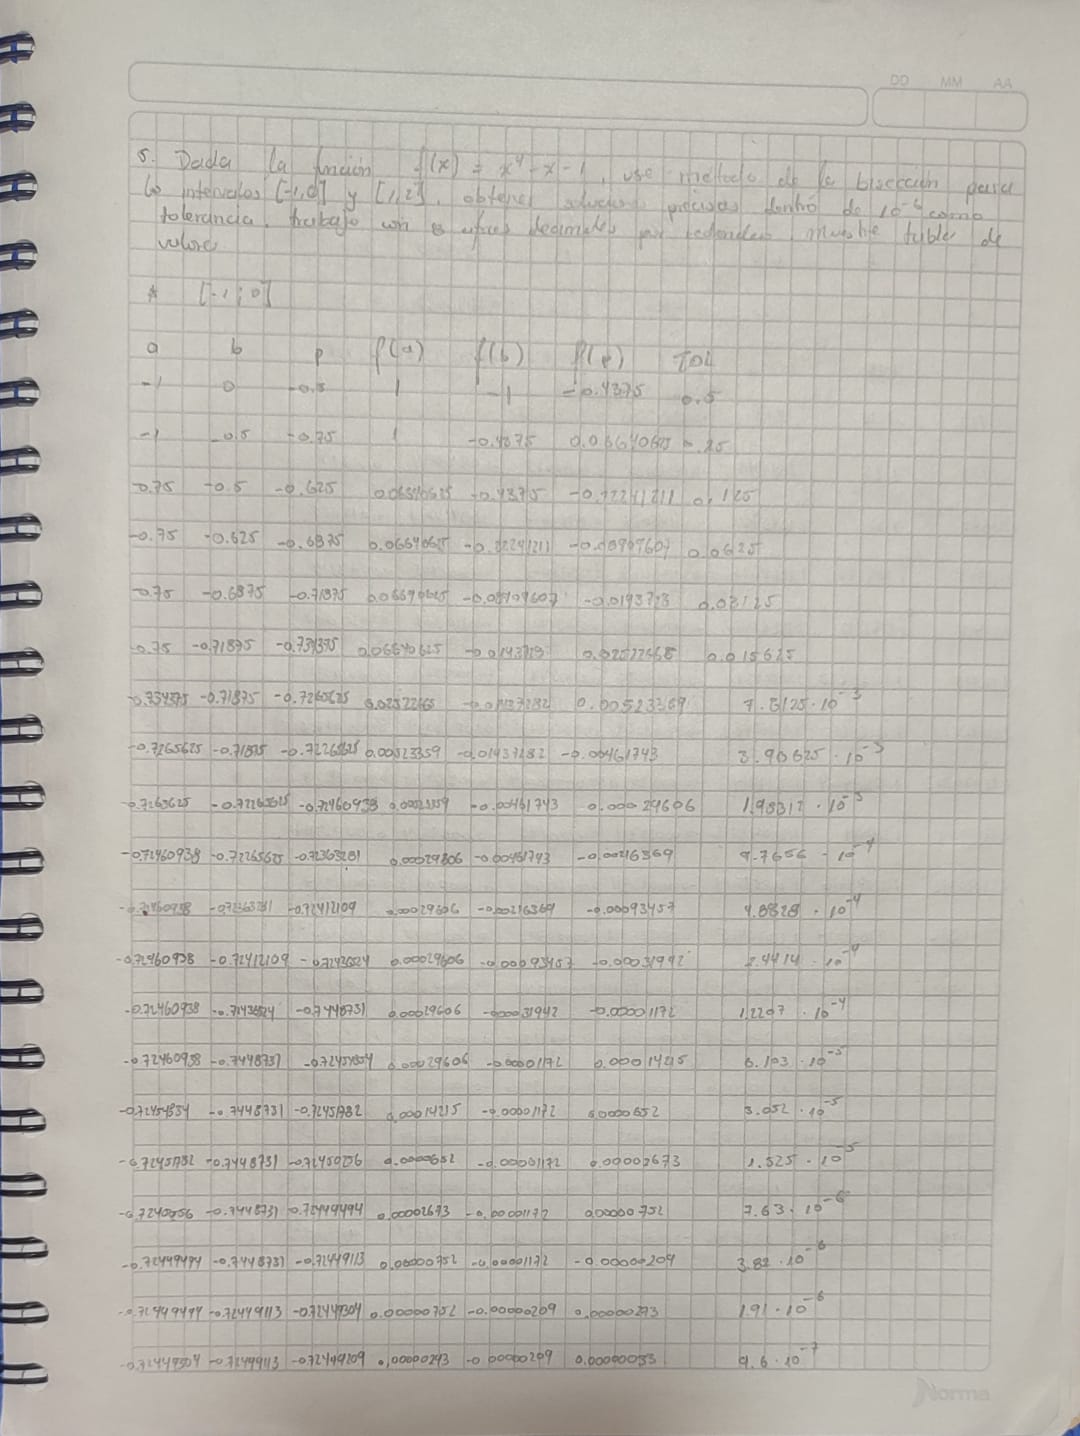 DD MM AA
5. Dada la función f(x) = x⁴ - x - 1, use método de la bisección para
los intervalos [-1,0] y [1,2], obtener precisas dentro de 10⁻⁶ como
tolerancia, trabajo con 8 cifras decimales por redondeo, muestre tabla de
valores
* [-1;0]
a b p f(a) f(b) f(p) TOL
-1 0 -0.5 1 -1 -0.4375 0.5
-1 -0.5 -0.75 1 -0.4375 0.06640625 0.25
-0.75 -0.5 -0.625 0.06640625 -0.4375 -0.22241211 0.125
-0.75 -0.625 -0.6875 0.06640625 -0.22241211 -0.08909607 0.0625
-0.75 -0.6875 -0.71875 0.06640625 -0.08909607 0.03125
-0.75 -0.71875 -0.734375 0.06640625 0.02522468 0.015625
-0.734375 -0.71875 -0.7265625 0.02522468 0.00523359 7.8125·10⁻³
-0.7265625 -0.71875 -0.72265625 0.00523359 -0.01437282 -0.00461743 3.90625·10⁻³
-0.7265625 -0.72265625 -0.72460938 -0.00461743 0.00029606 10⁻³
-0.72460938 -0.72265625 -0.72363281 0.00029606 -0.00461743 -0.00216369 9.7656·10⁻⁴
-0.72460938 -0.72363281 -0.72412109 0.00029606 -0.00216369 -0.00093457 4.8828·10⁻⁴
-0.72460938 -0.72412109 0.00029606 -0.00093457 -0.00031942 2.4414·10⁻⁴
-0.72460938 -0.7448731 0.00029606 -0.00031942 -0.00001172 1.2207·10⁻⁴
-0.72460938 -0.7448731 -0.72454834 0.00029606 -0.00001172 0.00014215 6.103·10⁻⁵
-0.72454834 -0.7448731 -0.7245182 0.00014215 -0.00001172 0.0000652 3.052·10⁻⁵
-0.7245182 -0.7448731 -0.7245026 0.0000652 -0.00001172 0.00002673 1.525·10⁻⁵
-0.7448731 -0.72449494 0.00002673 -0.00001172 0.00000752 7.63·10⁻⁶
-0.72449494 -0.7448731 -0.72449113 0.00000752 -0.00001172 -0.00000209 3.82·10⁻⁶
-0.72449494 -0.72449113 -0.72449304 0.00000752 -0.00000209 1.91·10⁻⁶
-0.72449304 -0.72449113 -0.72449209 -0.00000209 0.00000033 9.6·10⁻⁷
Norma